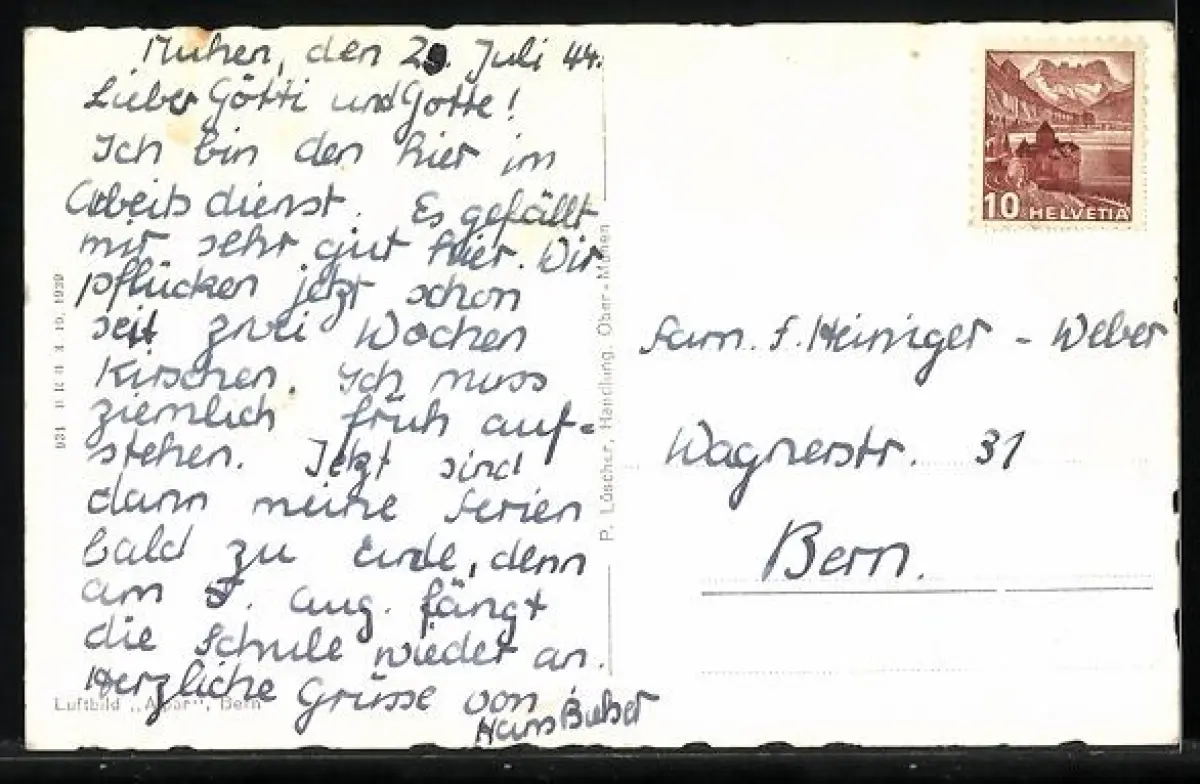 Muhen, den 29. Juli 44.
Lieber Götti und Gotte!
Ich bin den hier im
Arbeitsdienst. Es gefällt
mir sehr gut hier. Wir
pflücken jetzt schon
seit zwei Wochen
Kirschen. Ich muss
ziemlich früh auf=
stehen. Jetzt sind
dann meine Ferien
bald zu Ende, denn
am 5. Aug. fängt
die Schule wieder an.
Herzliche Grüsse von
Hans
10 HELVETIA
Fam. F. Heiniger - Weber
Wagnerstr. 31
Bern.
P. Löscher, Handlung, Ober-Muhen
10. 1939
Luftbild „Alpar", Bern